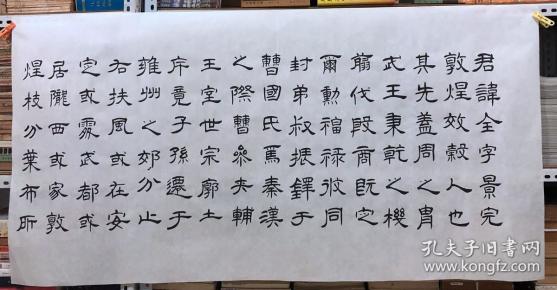 君諱全字景完
敦煌效穀人也
其先蓋周之胄
武王秉乾之機
翦伐殷商既定
爾勳福祿攸同
封弟叔振鐸于
曹國氏焉秦漢
之際曹參夾輔
王室世宗廓土
斥竟子孫遷于
雍州之郊分止
右扶風或在安
定或處武都或
居隴西或家敦
煌枝分葉布所
孔夫子旧书网
www.kongfz.com